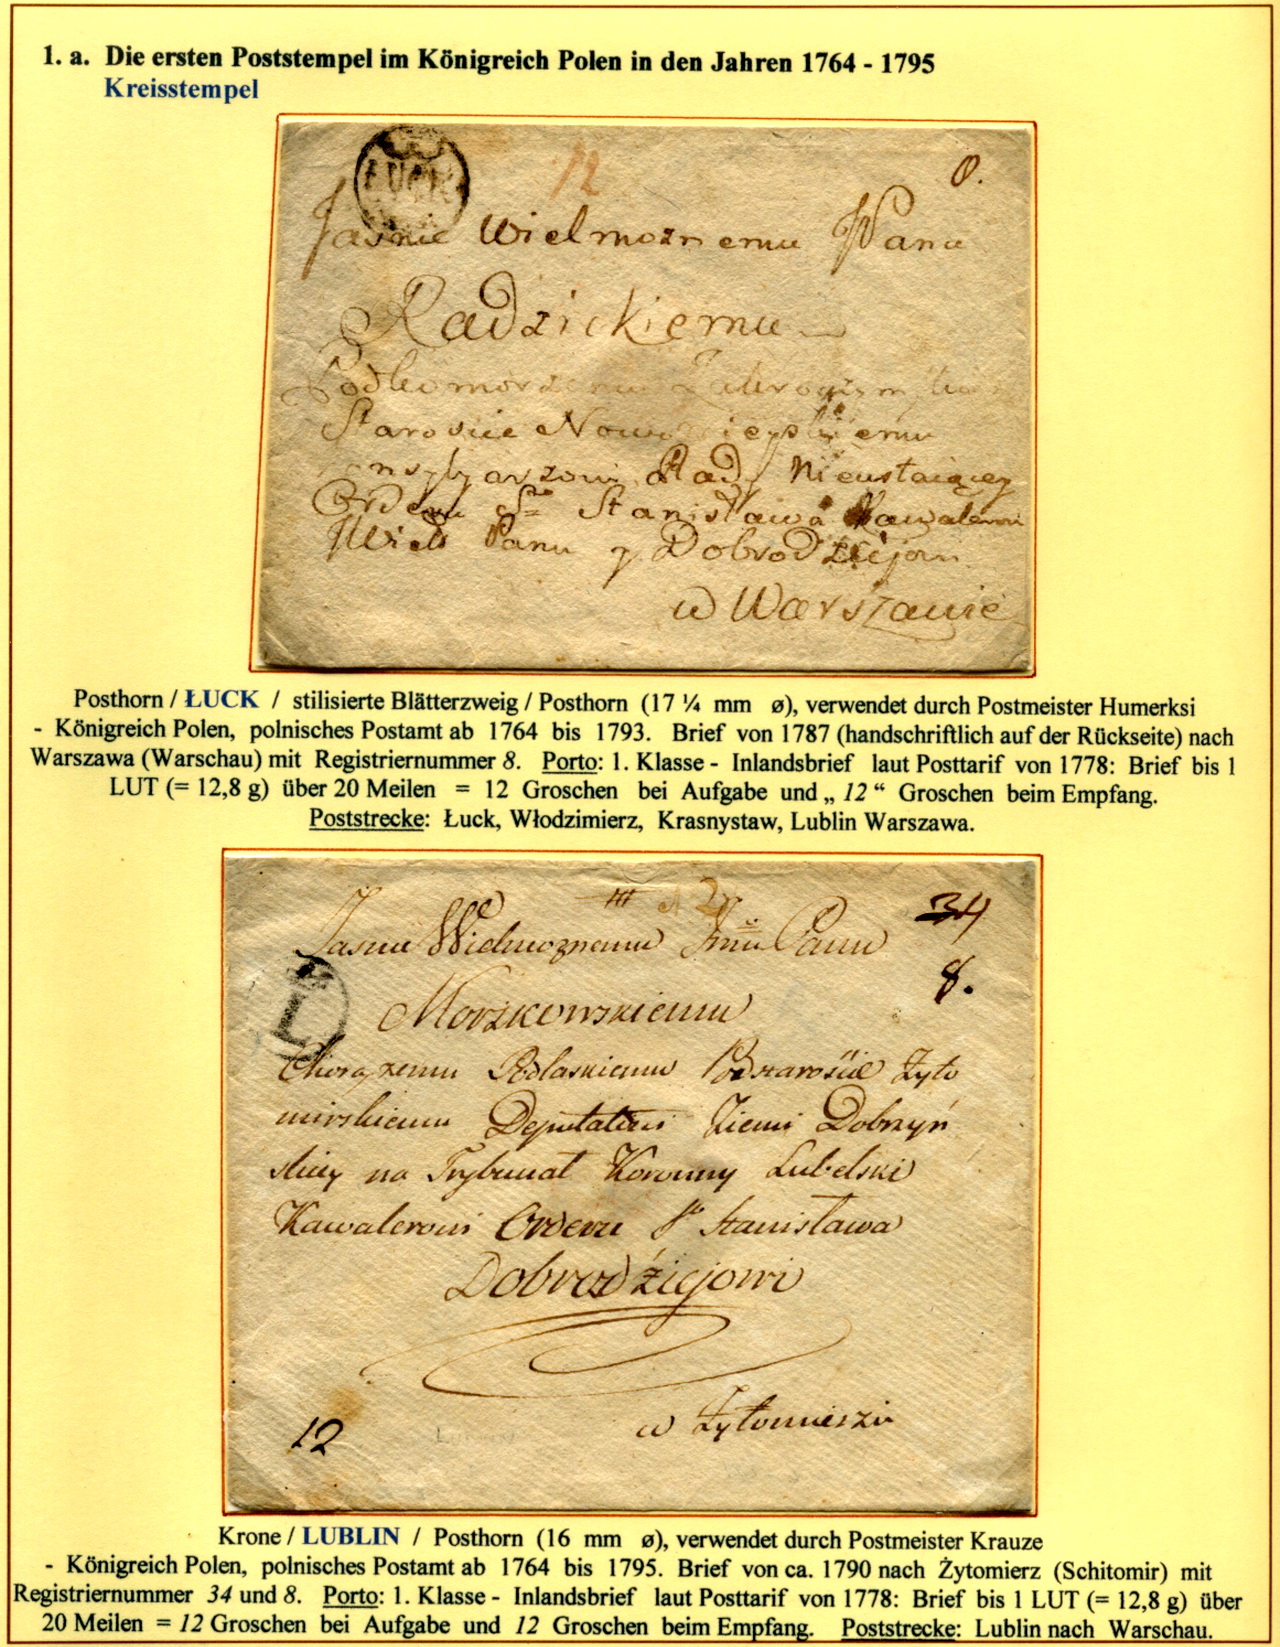 1. a. Die ersten Poststempel im Königreich Polen in den Jahren 1764 - 1795
Kreisstempel
ŁUCK
12
8.
Jaśnie Wielmoznemu JPanu
Radzickiemu
Podkomorzemu Zakroczymskie
Staroscie Nowo
Rady Nieustaiącey
Orderu Sgo Stanisława Kawalerowi
Wielo Panu y Dobrodziejowi
w Warszawie
Posthorn / ŁUCK / stilisierte Blätterzweig / Posthorn (17 ¼ mm ø), verwendet durch Postmeister Humerksi
- Königreich Polen, polnisches Postamt ab 1764 bis 1793. Brief von 1787 (handschriftlich auf der Rückseite) nach
Warszawa (Warschau) mit Registriernummer 8. Porto: 1. Klasse - Inlandsbrief laut Posttarif von 1778: Brief bis 1
LUT (= 12,8 g) über 20 Meilen = 12 Groschen bei Aufgabe und „ 12 “ Groschen beim Empfang.
Poststrecke: Łuck, Włodzimierz, Krasnystaw, Lublin Warszawa.
12
34
Jaśnie Wielmoznemu Jmci Panu
8.
L
Morzkowskiemu
Chorązemu Podlaskiemu Podstaroście Zyto
mirskiemu Deputatowi Ziemi Dobrzyń
skiey na Trybunał Koronny Lubelski
Kawalerowi Orderu Sgo Stanisława
Dobrodźiejowi
w Zytomierzu
12
Krone / LUBLIN / Posthorn (16 mm ø), verwendet durch Postmeister Krauze
- Königreich Polen, polnisches Postamt ab 1764 bis 1795. Brief von ca. 1790 nach Żytomierz (Schitomir) mit
Registriernummer 34 und 8. Porto: 1. Klasse - Inlandsbrief laut Posttarif von 1778: Brief bis 1 LUT (= 12,8 g) über
20 Meilen = 12 Groschen bei Aufgabe und 12 Groschen beim Empfang. Poststrecke: Lublin nach Warschau.